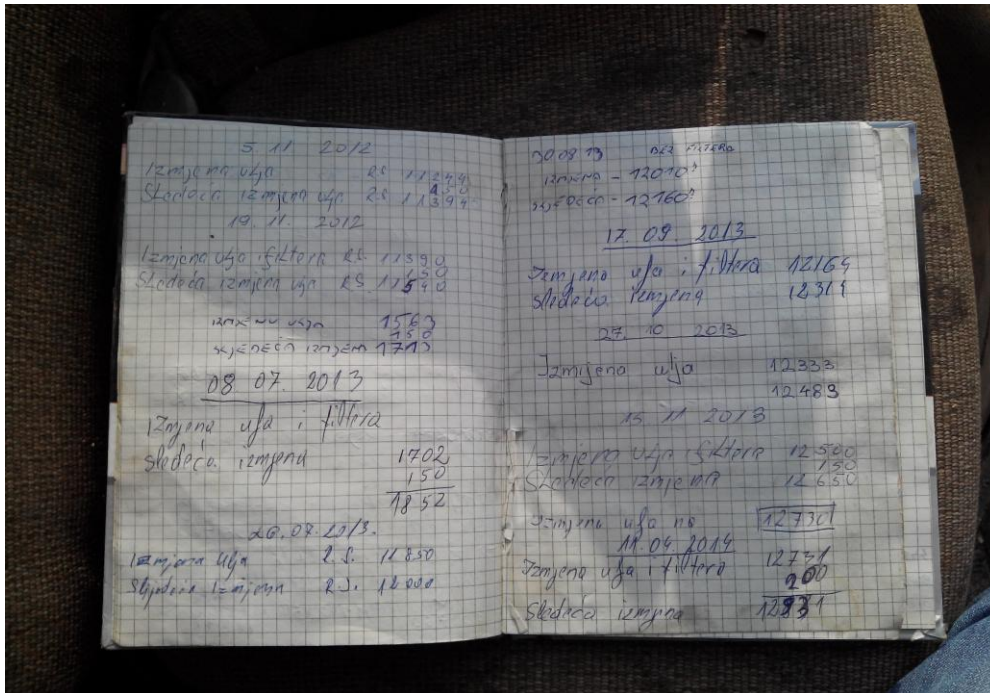 5. 11 2012
Izmjena ulja R.S. 11244
150
Sledeća izmjena ulja R.S. 11394
19. 11. 2012
Izmjena ulja i filtera R.S. 11390
150
Sledeća izmjena ulja R.S. 11540
1563
150
1713
08 07. 2013
Izmjena ulja i filtera
Sledeća izmjena 1702
150
1852
20.07.2013.
Izmjena Ulja R.S. 11850
Sljedeća Izmjena R.S. 12000
30 08 13 BEZ FILTERA
IZMJENA - 12010
SLJEDEĆA - 12160
17. 09. 2013
Izmjena ulja i filtera 12164
Sledeća izmjena 12314
27. 10 2013
Izmijena ulja 12333
12483
15 11 2013
Izmjena ulja i filtera 12500
150
Sledeća izmjena 12650
Izmjena ulja na 12730
11.04 2014
Izmjena ulja i filtera 12731
200
Sledeća izmjena 12931